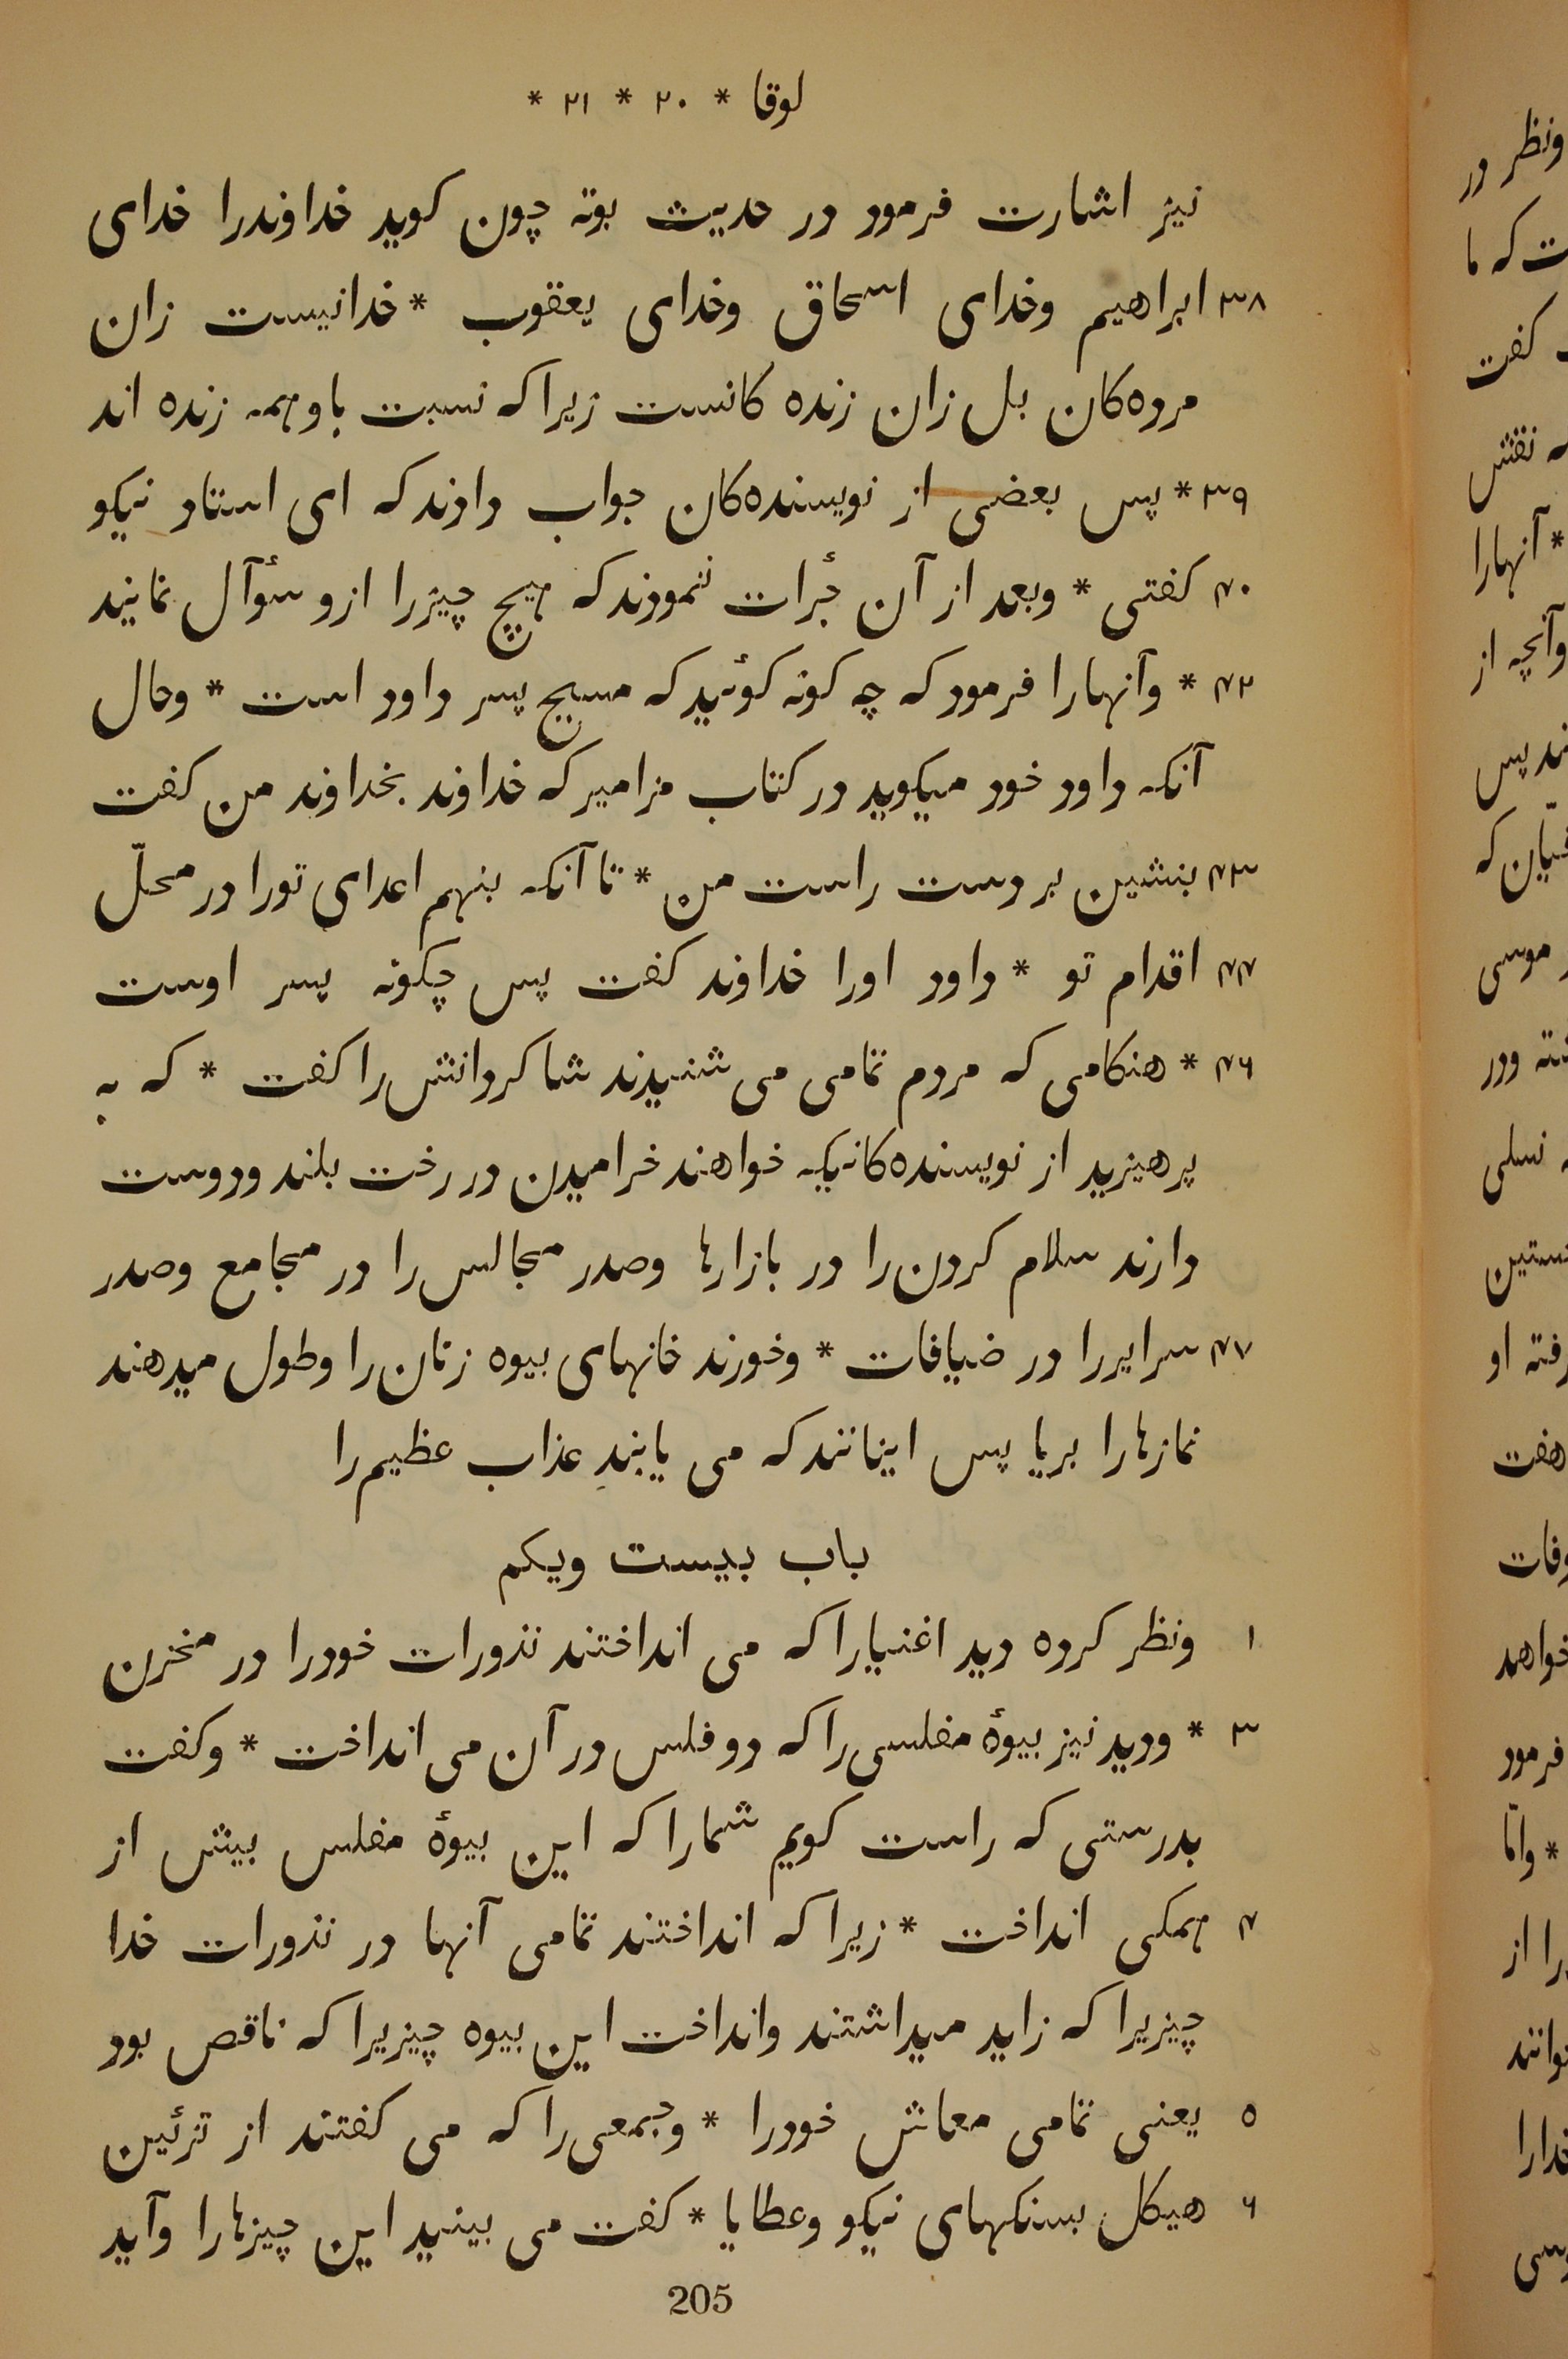 لوقا * ۲۰ * ۲۱ *
نیز اشارت فرمود در حدیث بوته چون کوید خداوندرا خدای
۳۸ ابراهیم وخدای اسحاق وخدای یعقوب * خدانیست زان
مرده‌کان بل زان زنده کانست زیراکه نسبت باوهمه زنده اند
۳۹ * پس بعضی از نویسنده‌کان جواب دادندکه ای استاد نیکو
۴۰ کفتی * وبعد از آن جرٔات ننمودندکه هیچ چیزرا ازو سٔوآل نمایند
۴۲ * وآنهارا فرمودکه چه کونه کوئیدکه مسیح پسر داود است * وحال
آنکه داود خود میکوید در کتاب مزامیرکه خداوند بخداوند من کفت
۴۳ بنشین بر دست راست من * تا آنکه بنهم اعدای تورا در محلّ
۴۴ اقدام تو * داود اورا خداوند کفت پس چکونه پسر اوست
۴۶ * هنکامی که مردم تمامی می شنیدند شاکردانش را کفت * که به
پرهیزید از نویسنده‌کانیکه خواهند خرامیدن در رخت بلند ودوست
دارند سلام کردن را در بازارها وصدر مجالس را در مجامع وصدر
۴۷ سرایررا در ضیافات * وخورند خانهای بیوه زنان را وطول میدهند
نمازهارا بریا پس اینانندکه می یابند عذاب عظیم را
باب بیست ویکم
۱ ونظر کرده دید اغنیاراکه می انداختند نذورات خودرا در مخزن
۳ * ودید نیز بیوهٔ مفلسی راکه دو فلس در آن می انداخت * وکفت
بدرستی که راست کویم شماراکه این بیوهٔ مفلس بیش از
۴ همکی انداخت * زیراکه انداختند تمامی آنها در نذورات خدا
چیزیراکه زاید میداشتند وانداخت این بیوه چیزیراکه ناقص بود
۵ یعنی تمامی معاش خودرا * وجمعی راکه می کفتند از تزئین
۶ هیکل بسنکهای نیکو وعطایا * کفت می بینید این چیزهارا وآید
205
ونظر در
که ما
کفت
نقش
* آنهارا
وآنچه از
پس
که
موسی
ودر
نسلی
او
هفت
خواهد
فرمود
* وامّا
را از